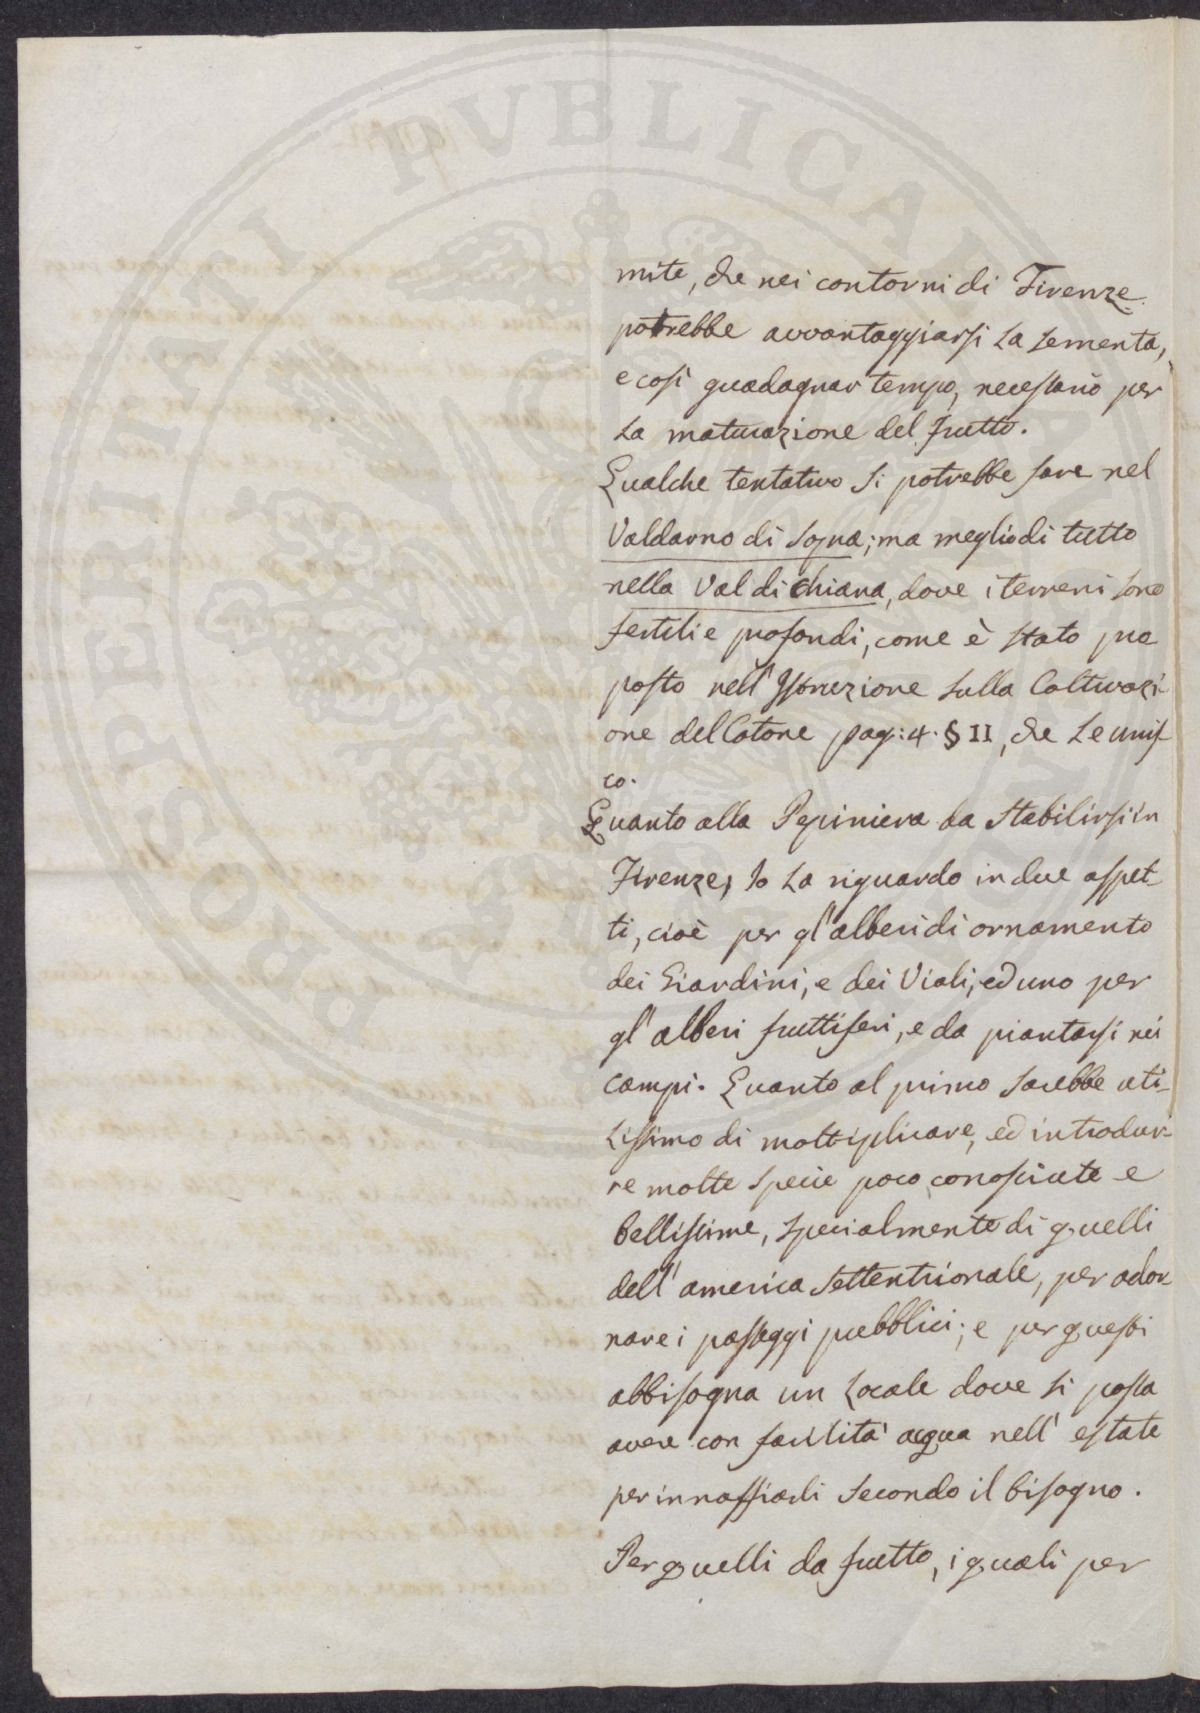 PROSPERITATI PVBLICAE
mite, che nei contorni di Firenze
potrebbe avvantaggiarsi la sementa,
e così guadagnar tempo, necessario per
la maturazione del frutto.
Qualche tentativo si potrebbe fare nel
Valdarno di sopra; ma meglio di tutto
nella Val di chiana, dove i terreni sono
fertili e profondi, come è stato pro
posto nell'Istruzione sulla Coltivazi-
one del Cotone pag: 4. § II, che Le unis-
co.
Quanto alla Pepiniera da stabilirsi in
Firenze, Io la riguardo in due aspet-
ti, cioè per gl'alberi di ornamento
dei Giardini, e dei Viali, ed uno per
gl'alberi fruttiferi, e da piantarsi nei
campi. Quanto al primo sarebbe uti-
lissimo di moltiplicare, ed introdur-
re molte specie poco conosciute e
bellissime, specialmente di quelli
dell'america Settentrionale, per ador
nare i passeggi pubblici; e per questi
abbisogna un Locale dove si possa
avere con facilità acqua nell'estate
per innaffiarli secondo il bisogno.
Per quelli da frutto, i quali per